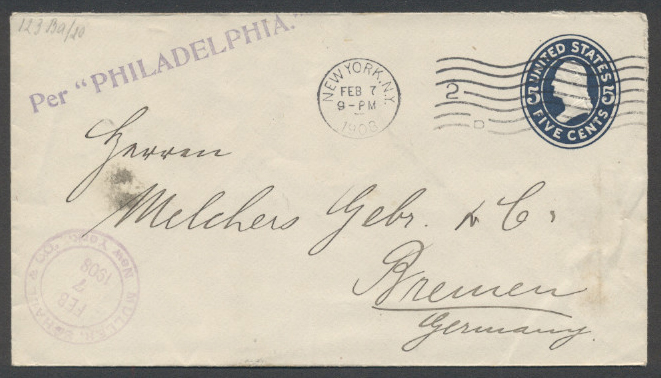 123 Ba/20
Per "PHILADELPHIA."
NEW YORK, N.Y.
FEB 7
9-PM
1908
2
D
UNITED STATES
5 5
FIVE CENTS
Herren
Melchers Gebr. & C:
Bremen
Germany.
MULLER, & CO. New York.
FEB
7
1908